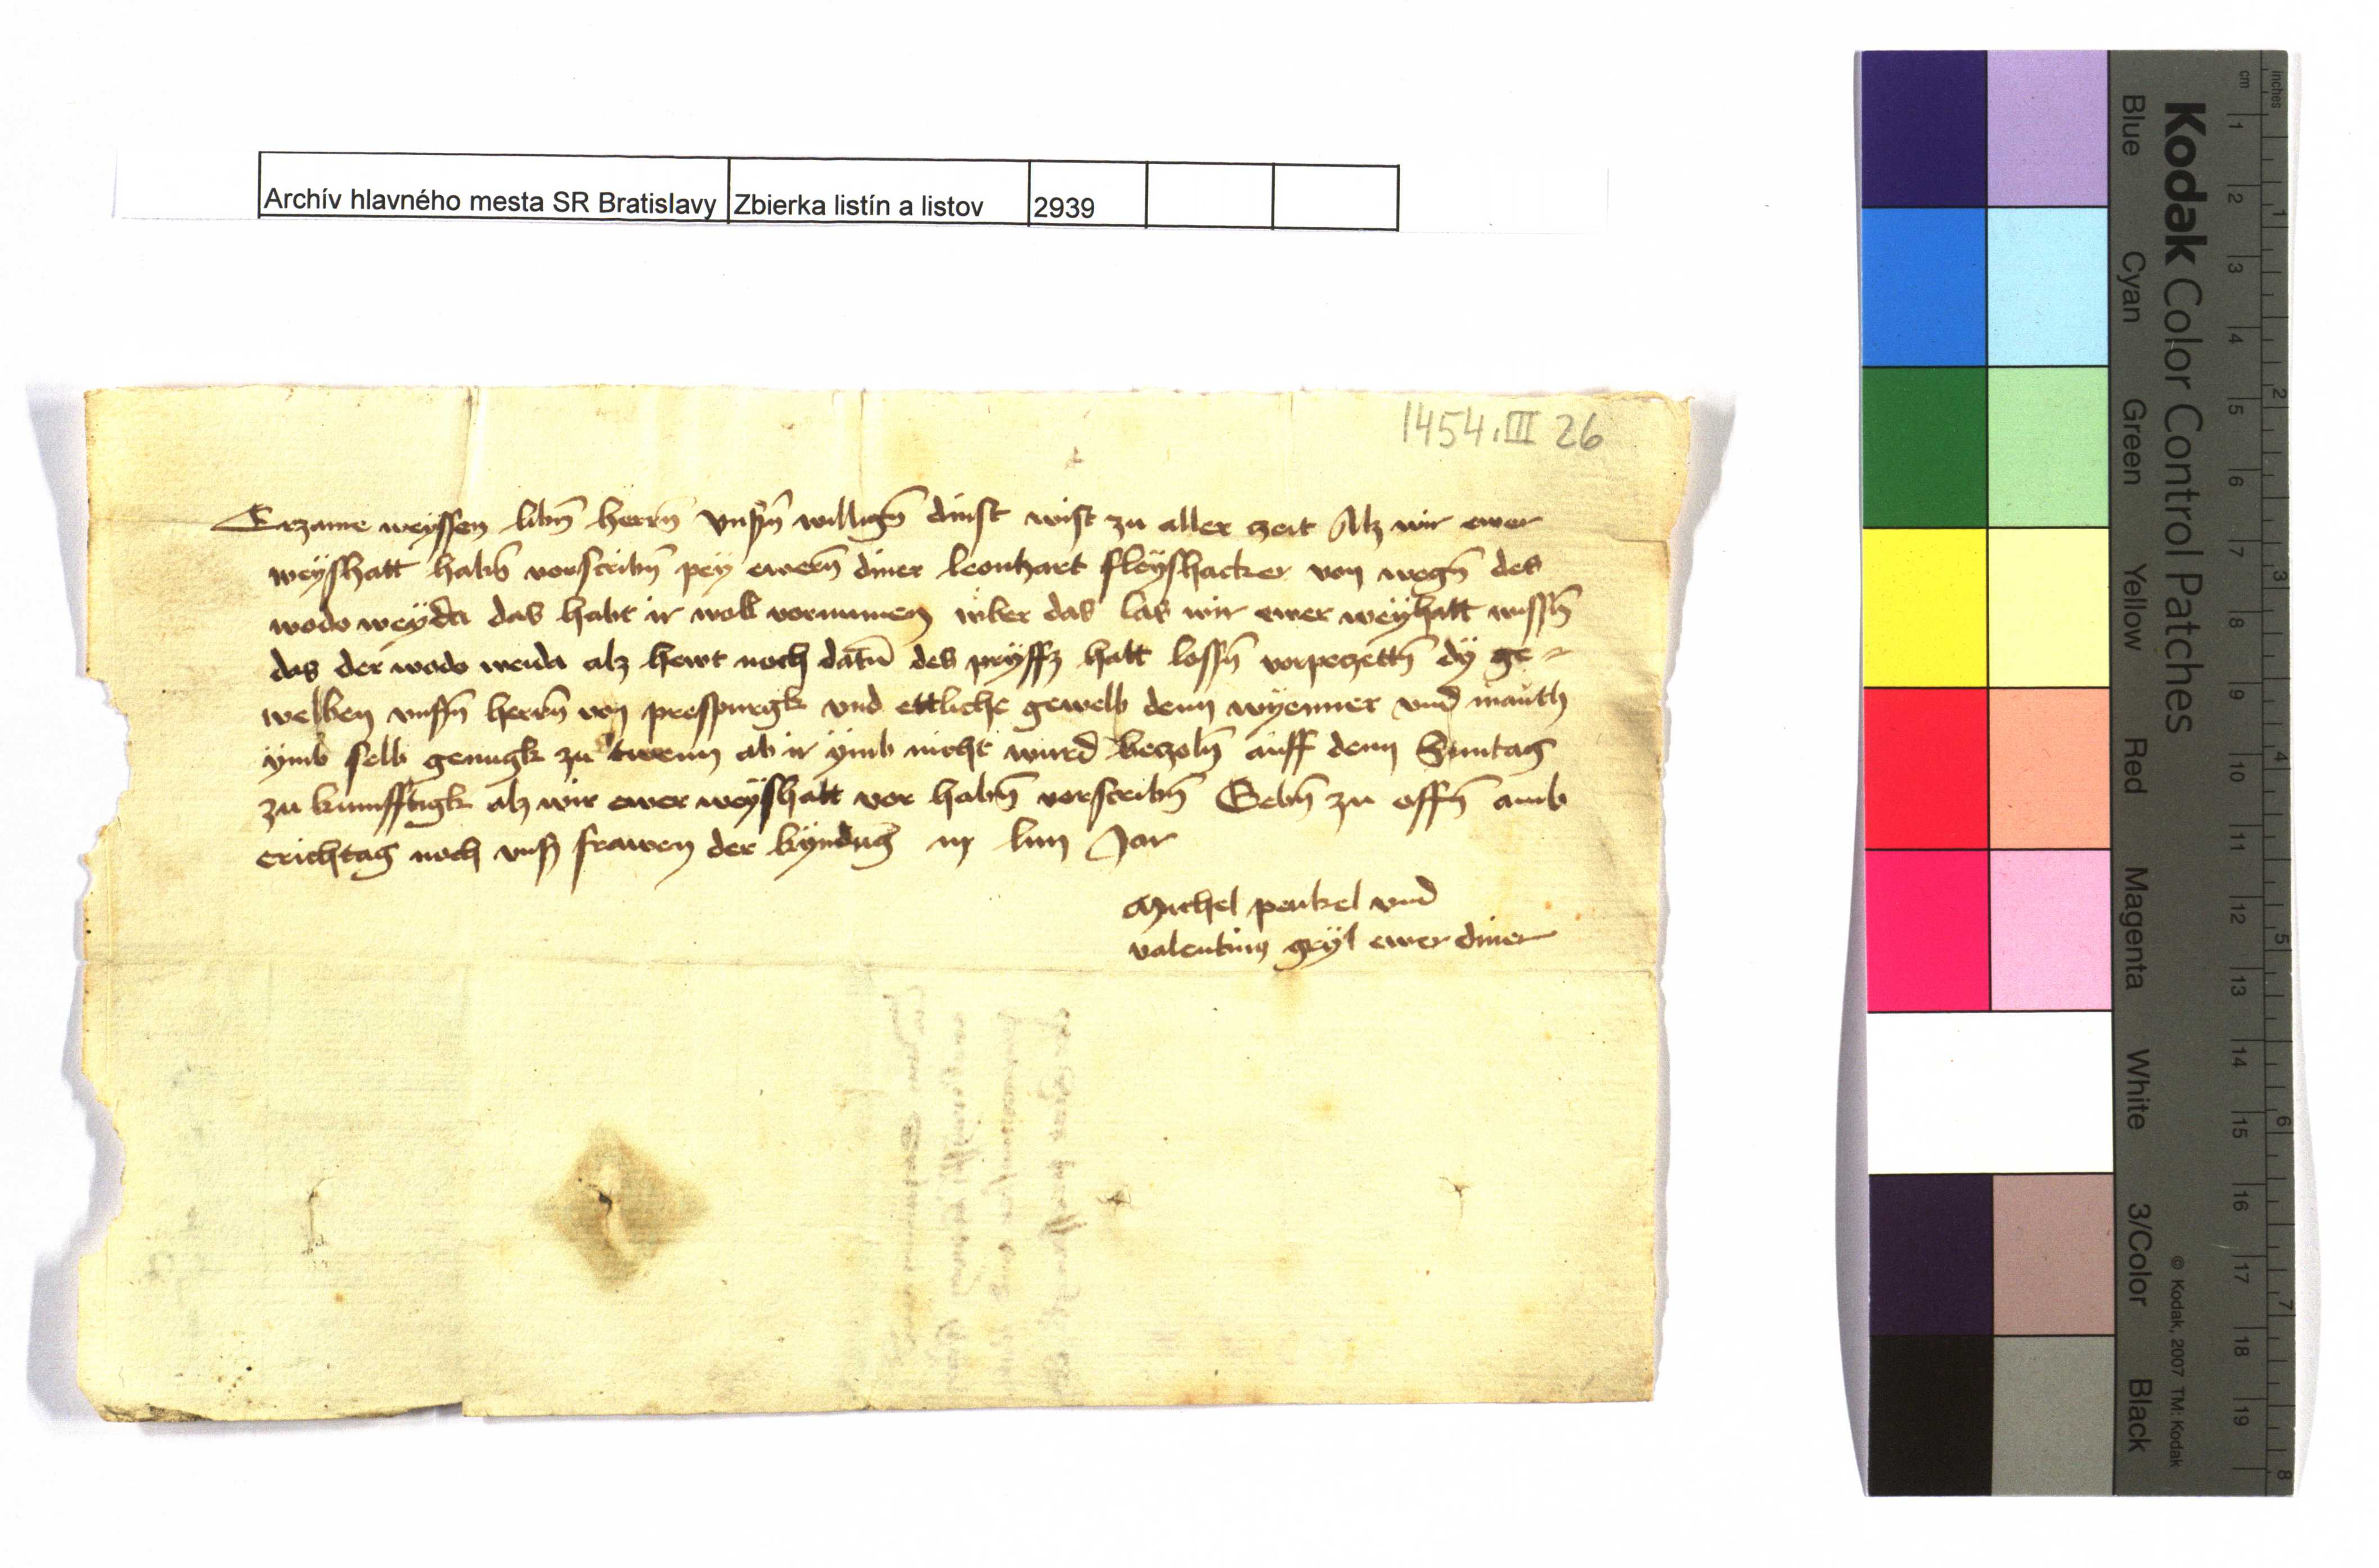 Archív hlavného mesta SR Bratislavy Zbierka listín a listov 2939
1454.III 26
Erzame weyssen libn̄ herrn̄ vnsn̄ willign̄ dinst wist zu aller zeit Alz wir ewer
weyshatt habn̄ vorscribn̄ pey ewern̄ diner leonhart fleyshacker von wegn̄ des
wodo weyda das habt ir woll vornumen über das las wir ewer weyshatt wissn̄
das der wodo weida alz hewt noch datū des pryffz hatt lossn̄ vorpeczettn̄ dy ge-
welben vnsn̄ herrn̄ von prespurgk vnd ettliche gewelb denn wyenner vnd mauth
ymb selb genugk zu twenn ab ir ymb nicht wurd beczoln̄ auff denn Suntag
zu kumfftigk alz wir ewer weyshatt vor habn̄ vorscribn̄ Gebn̄ zu offn̄ amb
erichtag noch vnsn̄ frawen der kyndūg ym liiij Jar
Michel peukel vnd
valentinus gryl ewer diner
Kodak Color Control Patches
Blue Cyan Green Yellow Red Magenta White 3/Color Black
© Kodak, 2007 TM: Kodak
cm 1 2 3 4 5 6 7 8 9 10 11 12 13 14 15 16 17 18 19
inches 1 2 3 4 5 6 7 8